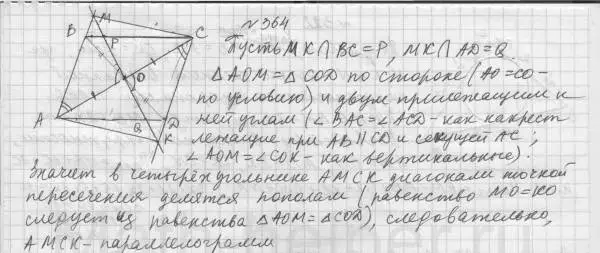 №364
M
B
P
C
O
A
Q
D
K
Пусть MK∩BC=P, MK∩AD=Q.
△AOM=△COD по стороне (AO=CO-
по условию) и двум прилежащим к
ней углам (∠BAC=∠ACD-как накрест
лежащие при AB||CD и секущей AC;
∠AOM=∠COK-как вертикальные).
Значит в четырёхугольнике AMCK диагонали точкой
пересечения делятся пополам (равенство MO=KO
следует из равенства △AOM=△COD), следовательно,
AMCK-параллелограмм